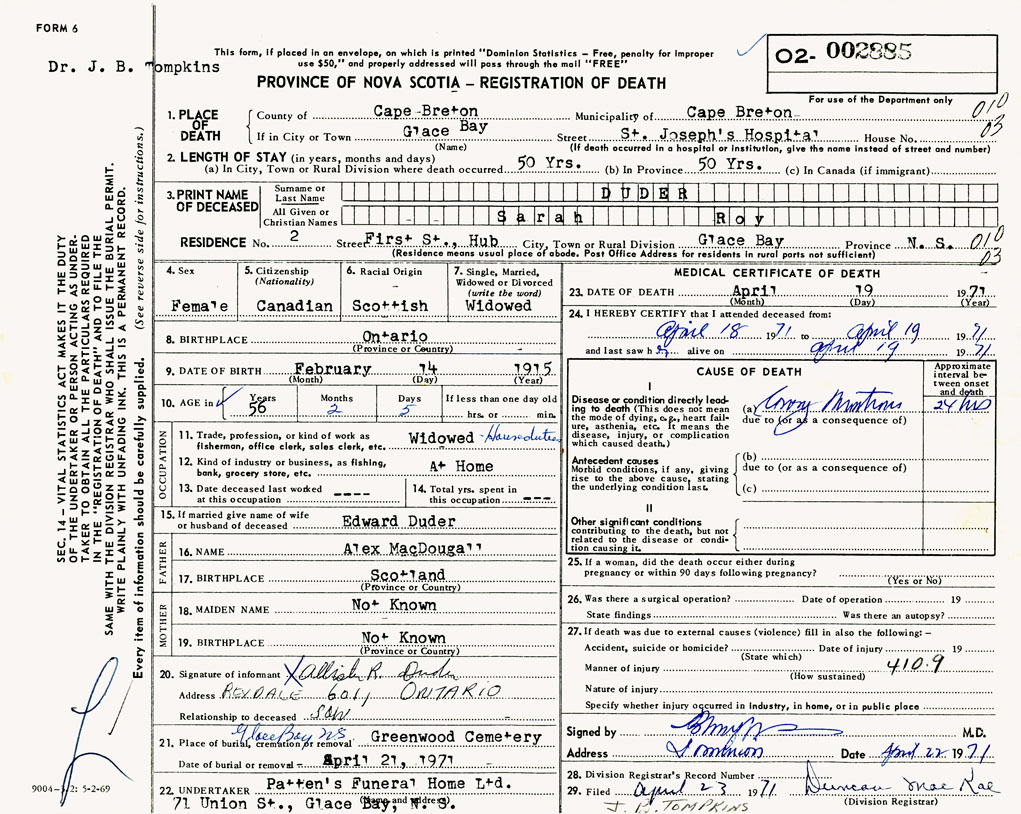 FORM 6
Dr. J. B. Tompkins
This form, if placed in an envelope, on which is printed "Dominion Statistics – Free, penalty for improper
use $50," and properly addressed will pass through the mail "FREE"
O2- 002885
PROVINCE OF NOVA SCOTIA – REGISTRATION OF DEATH
For use of the Department only
1. PLACE OF DEATH
County of Cape Breton Municipality of Cape Breton 010
If in City or Town Glace Bay Street St. Joseph's Hospital House No. 03
(Name) (If death occurred in a hospital or institution, give the name instead of street and number)
2. LENGTH OF STAY (in years, months and days)
(a) In City, Town or Rural Division where death occurred 50 Yrs. (b) In Province 50 Yrs. (c) In Canada (if immigrant)
3. PRINT NAME OF DECEASED
Surname or Last Name DUDER
All Given or Christian Names Sarah Roy
RESIDENCE No. 2 Street First St., Hub City, Town or Rural Division Glace Bay Province N. S. 010
(Residence means usual place of abode. Post Office Address for residents in rural parts not sufficient) 03
4. Sex
Female
5. Citizenship
(Nationality)
Canadian
6. Racial Origin
Scottish
7. Single, Married,
Widowed or Divorced
(write the word)
Widowed
8. BIRTHPLACE Ontario
(Province or Country)
9. DATE OF BIRTH February 14 1915
(Month) (Day) (Year)
10. AGE in Years Months Days If less than one day old
56 2 5 hrs. or min.
OCCUPATION
11. Trade, profession, or kind of work as Widowed - Houseduties
fisherman, office clerk, sales clerk, etc.
12. Kind of industry or business, as fishing, At Home
bank, grocery store, etc.
13. Date deceased last worked ----
at this occupation
14. Total yrs. spent in
this occupation ---
15. If married give name of wife
or husband of deceased Edward Duder
FATHER
16. NAME Alex MacDougall
17. BIRTHPLACE Scotland
(Province or Country)
MOTHER
18. MAIDEN NAME Not Known
19. BIRTHPLACE Not Known
(Province or Country)
20. Signature of informant X R. Duder
Address REXDALE 601, ONTARIO
Relationship to deceased SON
Glace Bay NS
21. Place of burial, cremation or removal Greenwood Cemetery
Date of burial or removal – April 21, 1971
22. UNDERTAKER Patten's Funeral Home Ltd.
71 Union St., Glace Bay, N. S.
(Name and address)
MEDICAL CERTIFICATE OF DEATH
23. DATE OF DEATH April 19 1971
(Month) (Day) (Year)
24. I HEREBY CERTIFY that I attended deceased from:
April 18 1971 to April 19 1971
and last saw her alive on April 19 1971
CAUSE OF DEATH
Approximate
interval be-
tween onset
and death
I
Disease or condition directly lead-
ing to death (This does not mean
the mode of dying, e.g., heart fail-
ure, asthenia, etc. It means the
disease, injury, or complication
which caused death.)
(a) 24 hrs
due to (or as a consequence of)
Antecedent causes
Morbid conditions, if any, giving
rise to the above cause, stating
the underlying condition last.
(b)
due to (or as a consequence of)
(c)
II
Other significant conditions
contributing to the death, but not
related to the disease or condi-
tion causing it.
25. If a woman, did the death occur either during
pregnancy or within 90 days following pregnancy?
(Yes or No)
26. Was there a surgical operation? Date of operation 19
State findings Was there an autopsy?
27. If death was due to external causes (violence) fill in also the following: –
Accident, suicide or homicide? Date of injury 19
(State which)
Manner of injury 410.9
(How sustained)
Nature of injury
Specify whether injury occurred in industry, in home, or in public place
Signed by M.D.
Address Dominion Date April 22 1971
28. Division Registrar's Record Number
29. Filed April 23 1971 Duncan MacRae
J. B. TOMPKINS (Division Registrar)
SEC. 14 – VITAL STATISTICS ACT MAKES IT THE DUTY
OF THE UNDERTAKER OR PERSON ACTING AS UNDER-
TAKER TO OBTAIN ALL THE PARTICULARS REQUIRED
IN THE "REGISTRATION OF DEATH" AND TO FILE THE
SAME WITH THE DIVISION REGISTRAR WHO SHALL ISSUE THE BURIAL PERMIT.
WRITE PLAINLY WITH UNFADING INK. THIS IS A PERMANENT RECORD.
Every item of information should be carefully supplied. (See reverse side for instructions.)